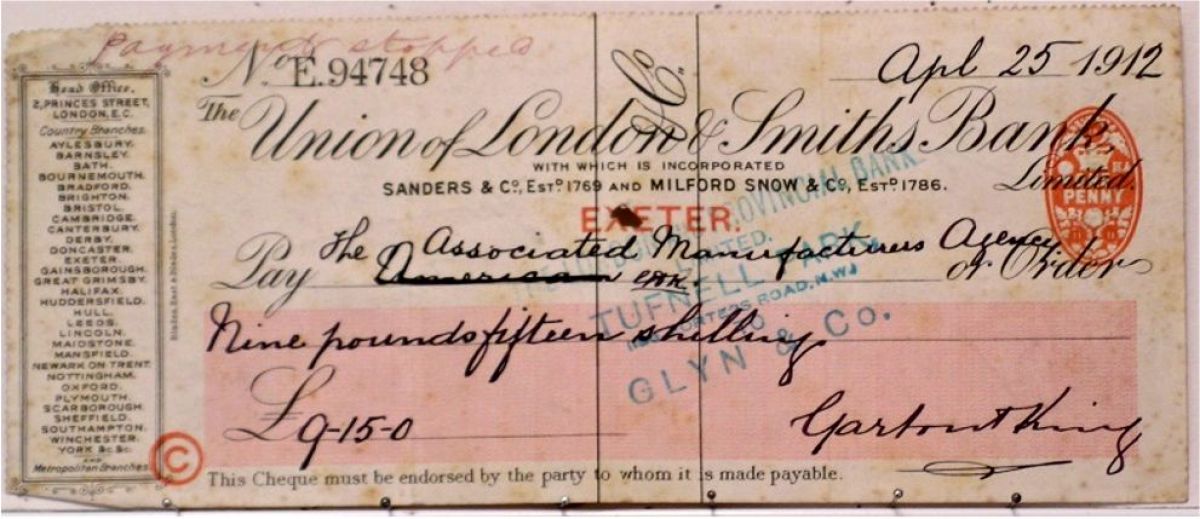 Payment stopped
No. E.94748
Apl 25 1912
The Union of London & Smiths Bank, Limited.
WITH WHICH IS INCORPORATED
SANDERS & Co, ESTD 1769 AND MILFORD SNOW & Co, ESTD 1786.
EXETER.
Pay The Associated Manufacturers Agency or Order
American
Nine pounds fifteen shillings
£9-15-0
Garton & King
This Cheque must be endorsed by the party to whom it is made payable.
Head Office,
2, PRINCES STREET,
LONDON, E.C.
Country Branches.
AYLESBURY.
BARNSLEY.
BATH.
BOURNEMOUTH.
BRADFORD.
BRIGHTON.
BRISTOL.
CAMBRIDGE.
CANTERBURY.
DERBY.
DONCASTER.
EXETER.
GAINSBOROUGH.
GREAT GRIMSBY.
HALIFAX.
HUDDERSFIELD.
HULL.
LEEDS.
LINCOLN.
MAIDSTONE.
MANSFIELD.
NEWARK ON TRENT.
NOTTINGHAM.
OXFORD.
PLYMOUTH.
SCARBOROUGH.
SHEFFIELD.
SOUTHAMPTON.
WINCHESTER.
YORK &c &c.
AND
Metropolitan Branches.
& Co.
PROVINCIAL BANK
LIMITED.
TUFNELL PARK,
ROAD, N.W.
TO
GLYN & Co.
PENNY
C